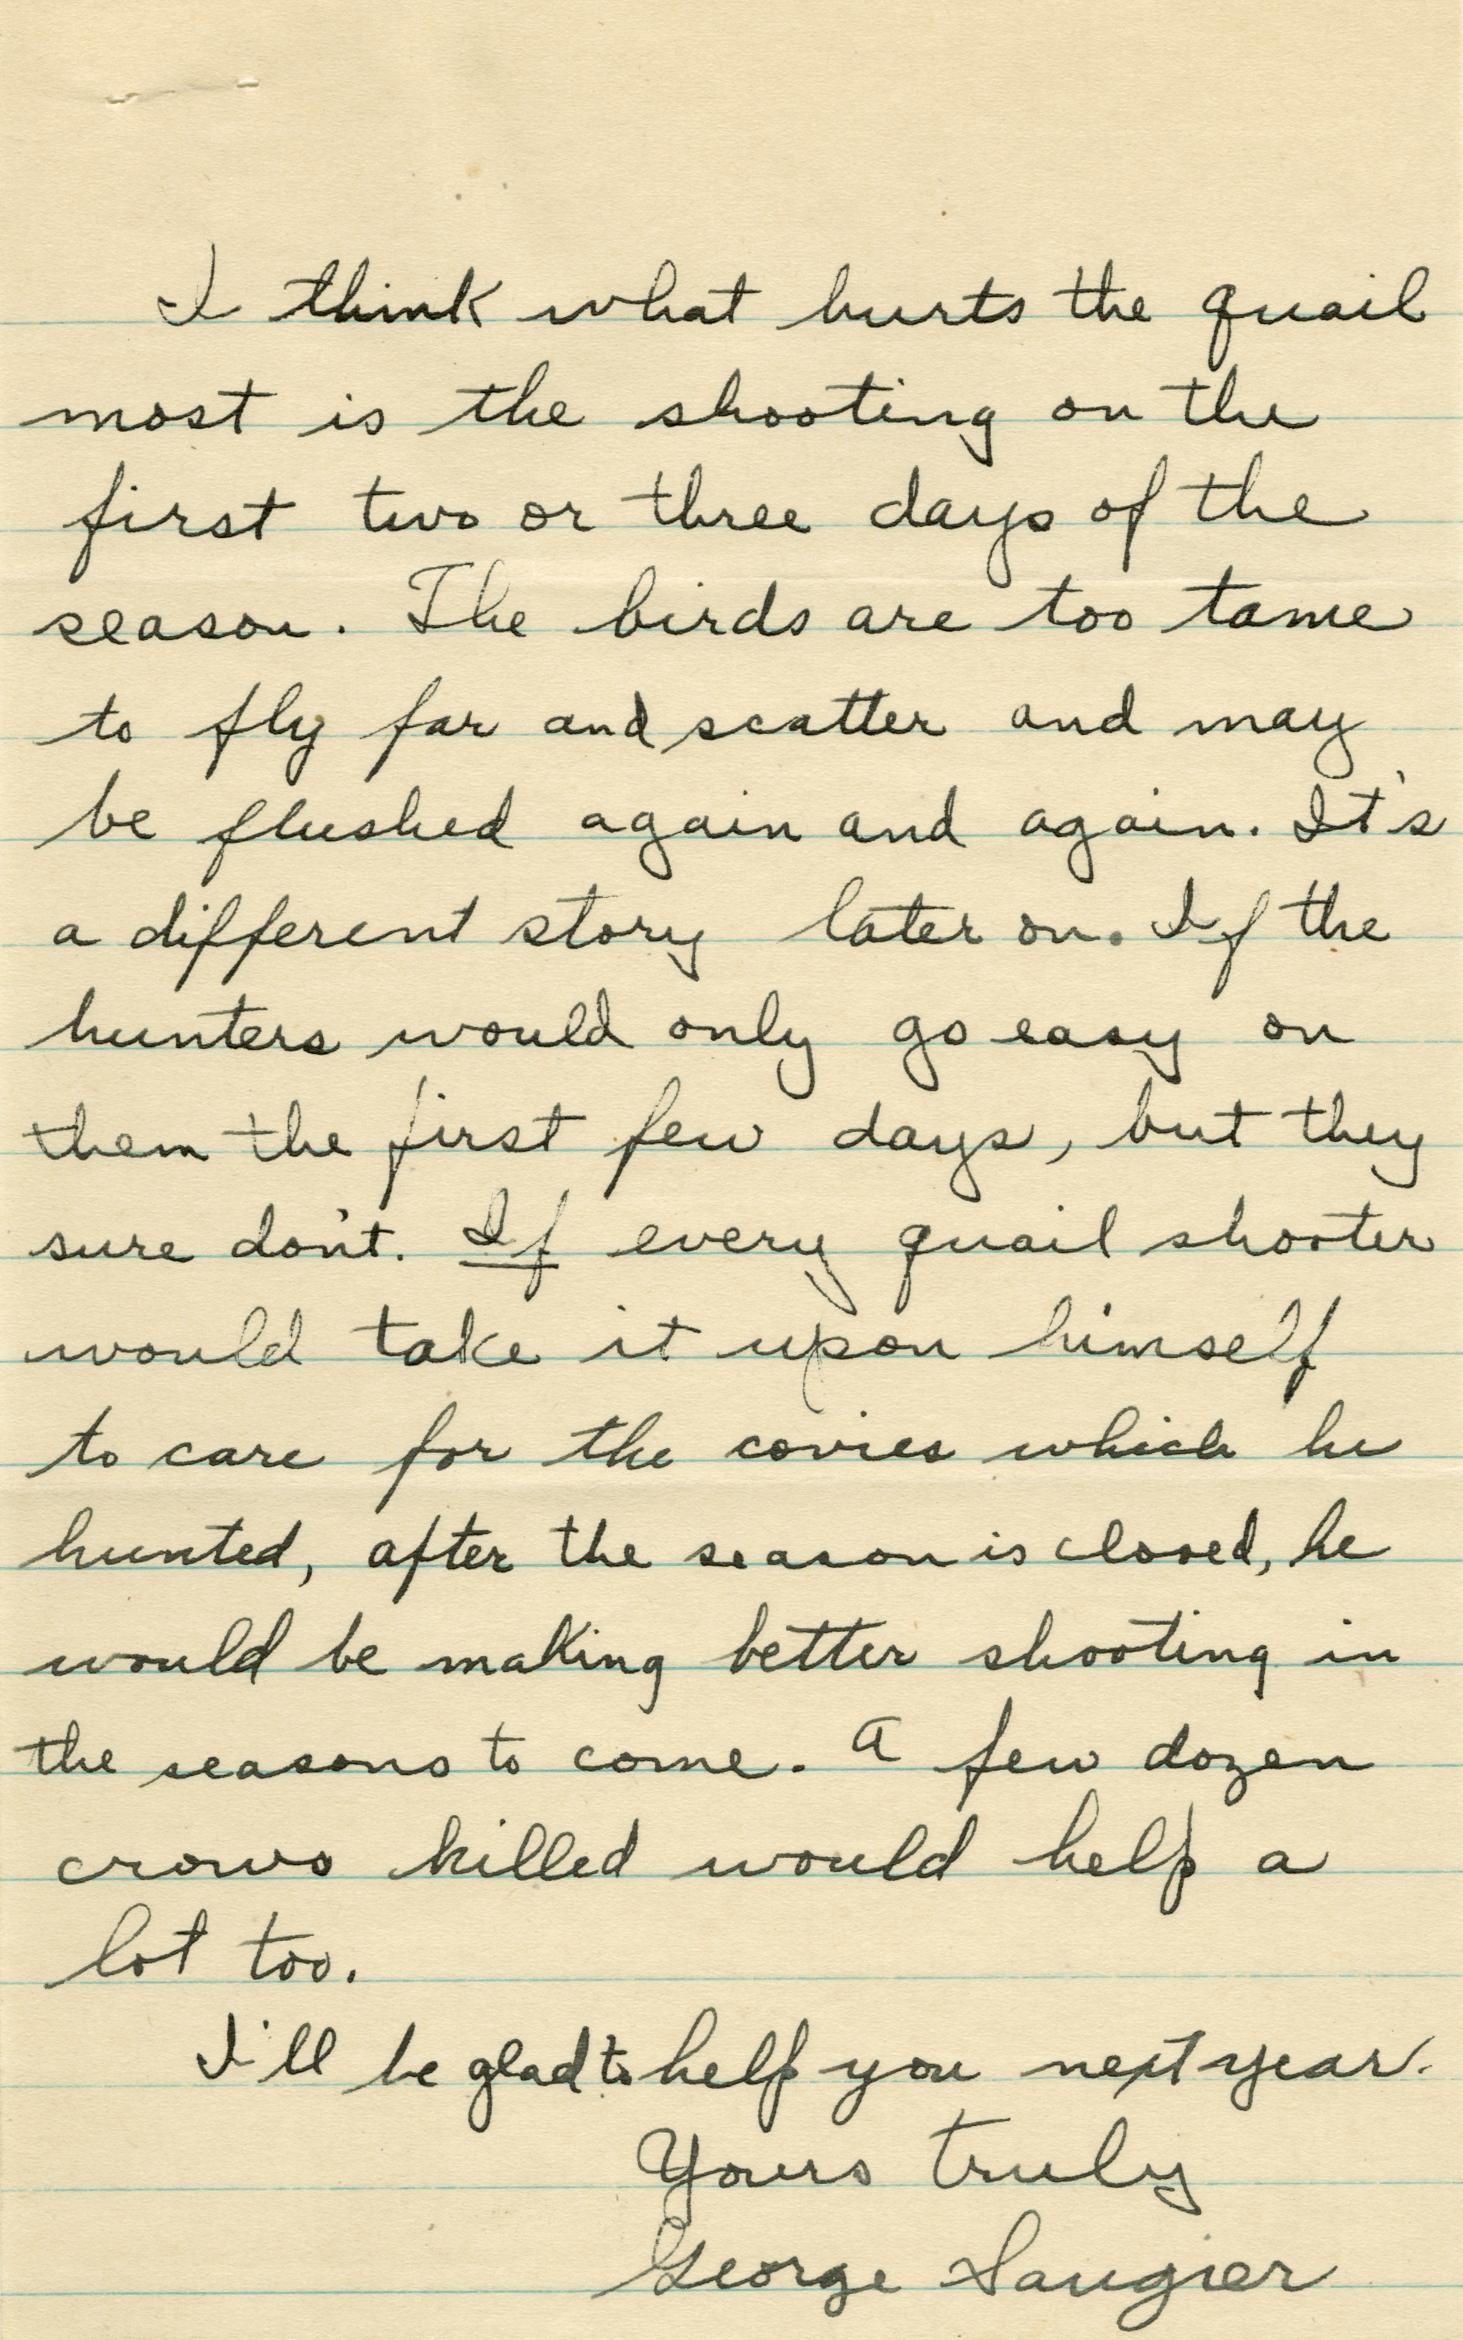 I think what hurts the quail
most is the shooting on the
first two or three days of the
season. The birds are too tame
to fly far and scatter and may
be flushed again and again. It's
a different story later on. If the
hunters would only go easy on
them the first few days, but they
sure don't. If every quail shooter
would take it upon himself
to care for the covies which he
hunted, after the season is closed, he
would be making better shooting in
the seasons to come. A few dozen
crows killed would help a
lot too.
I'll be glad to help you next year.
Yours truly
George Saugier